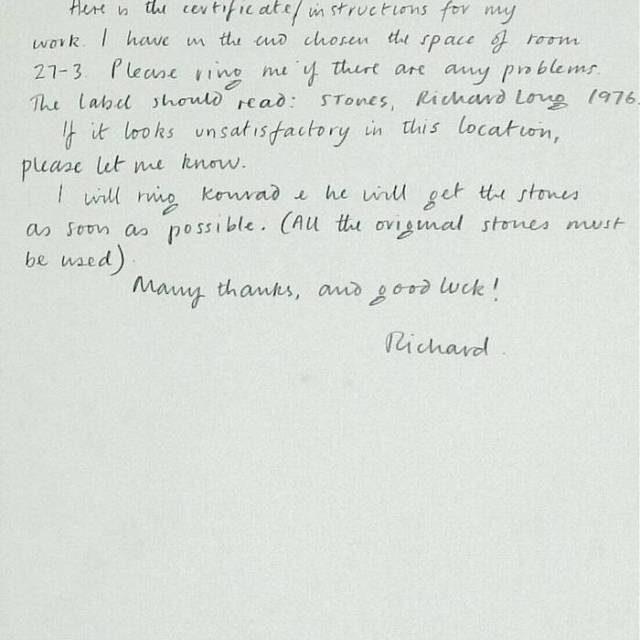 Here is the certificate/instructions for my
work. I have in the end chosen the space of room
27-3. Please ring me if there are any problems.
The label should read: STONES, Richard Long 1976.
If it looks unsatisfactory in this location,
please let me know.
I will ring Konrad & he will get the stones
as soon as possible. (All the original stones must
be used).
Many thanks, and good luck!
Richard.